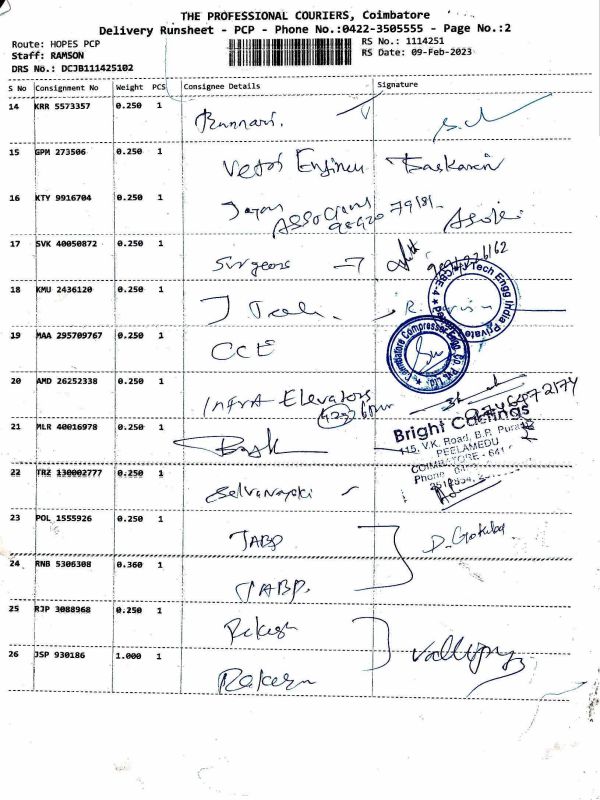 THE PROFESSIONAL COURIERS, Coimbatore
Delivery Runsheet - PCP - Phone No.:0422-3505555 - Page No.:2
Route: HOPES PCP
Staff: RAMSON
DRS No.: DCJB111425102
RS No.: 1114251
RS Date: 09-Feb-2023
S No Consignment No Weight PCS Consignee Details Signature
14 KRR 5573357 0.250 1 Bannari.
15 GPM 273506 0.250 1 Vector Engineer Baskaran
16 KTY 9916704 0.250 1 Jayam
Associans
17 SVK 40050872 0.250 1 Surgeons
18 KMU 2436120 0.250 1 J Tech.
19 MAA 295709767 0.250 1 CCE
20 AMD 26252338 0.250 1 Infra Elevators
21 MLR 40016978 0.250 1
22 TRZ 130002777 0.250 1 Selvanayaki
23 POL 1555926 0.250 1 JABP
24 RNB 5306308 0.360 1 JABP.
D. Gokula
25 RJP 3088968 0.250 1 Rakesh
26 JSP 930186 1.000 1 Rakesh
J Tech Engg India Private
Coimbatore Compressor Engg. Co. Pvt. Ltd.
Bright Castings
115, V.K. Road, B.R. Puram
PEELAMEDU
COIMBATORE - 641
Phone